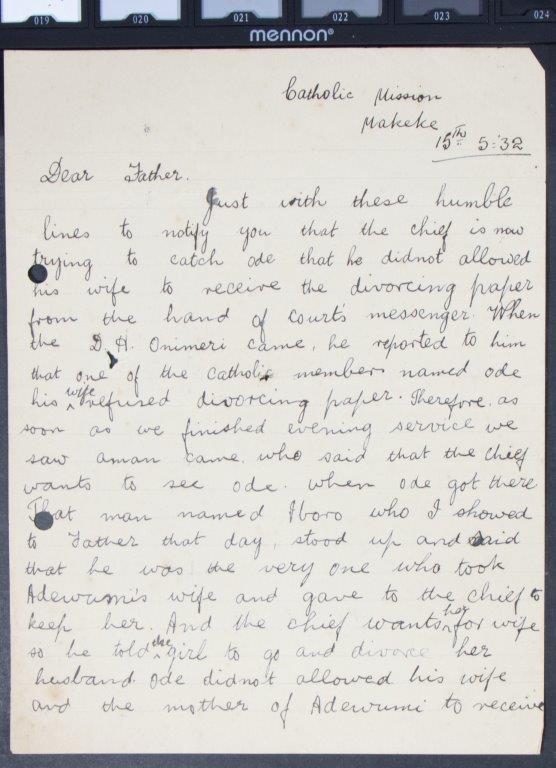 019 020 021 022 023 024
mennon®
Catholic Mission
Makeke
15TH 5:'32
Dear Father.
Just with these humble
lines to notify you that the chief is now
trying to catch ode that he didnot allowed
his wife to receive the divorcing paper
from the hand of court's messenger. When
the D.H. Onimeri came, he reported to him
that one of the catholic members named ode
his wife refused divorcing paper. Therefore, as
soon as we finished evening service we
saw aman came, who said that the chief
wants to see ode. when ode got there
That man named Iboro who I showed
to Father that day, stood up and said
that he was the very one who took
Adewumi's wife and gave to the chief to
keep her. And the chief wants her for wife
so he told the girl to go and divorce her
husband Ode didnot allowed his wife
and the mother of Adewumi to receive